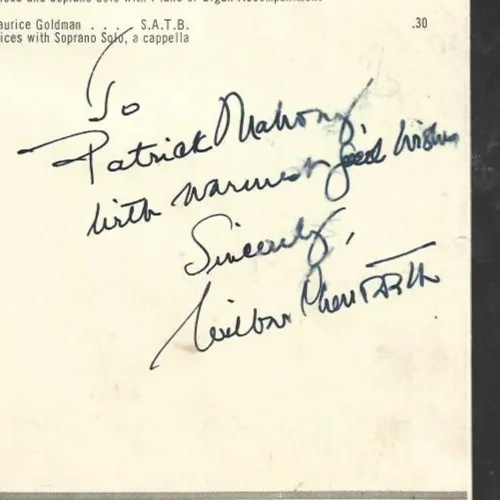 Solo with Piano or Organ Accompaniment
aurice Goldman . . . . S.A.T.B. .30
ices with Soprano Solo, a cappella
To
Patrick Mahony,
With warmest good wishes
Sincerely,
Wilbur Chenoweth